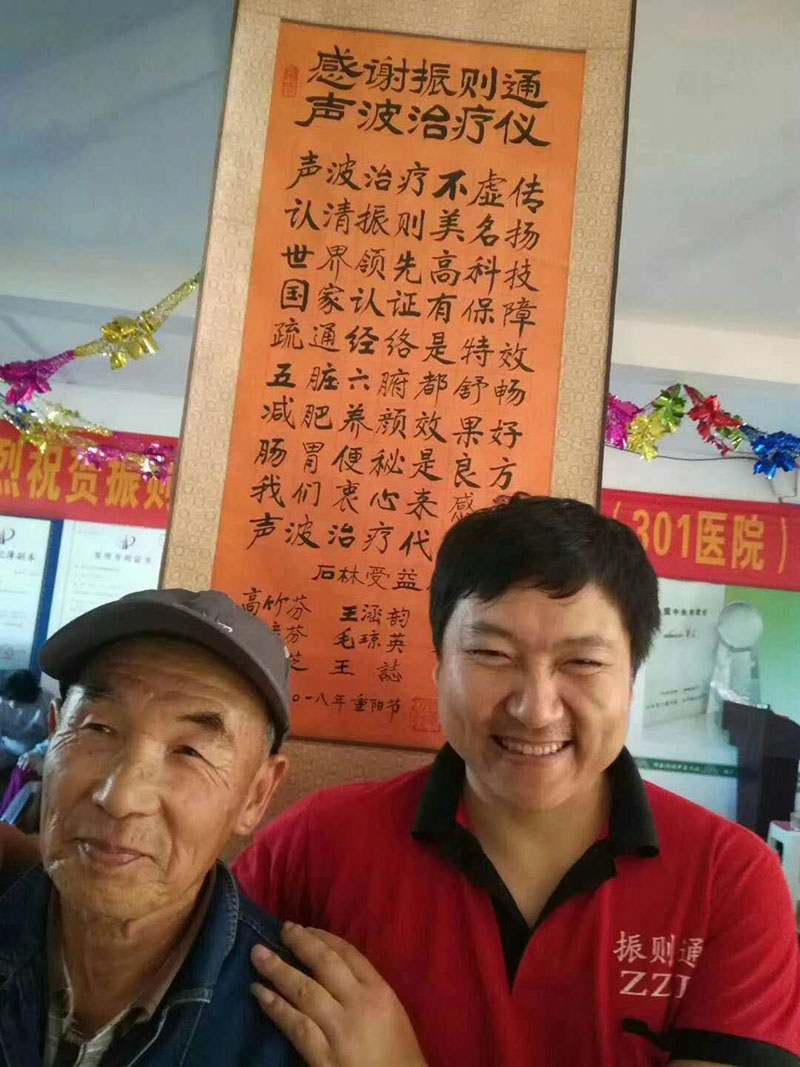 感谢振则通
声波治疗仪
声波治疗不虚传
认清振则美名扬
世界领先高科技
国家认证有保障
疏通经络是特效
五脏六腑都舒畅
减肥养颜效果好
肠胃便秘是良方
我们衷心来感
声波治疗代
石林受益
高竹芬 王涵韵
芬 毛琼英
芝 王 誌
一八年重阳节
烈祝贺振则
（301医院）
振则通